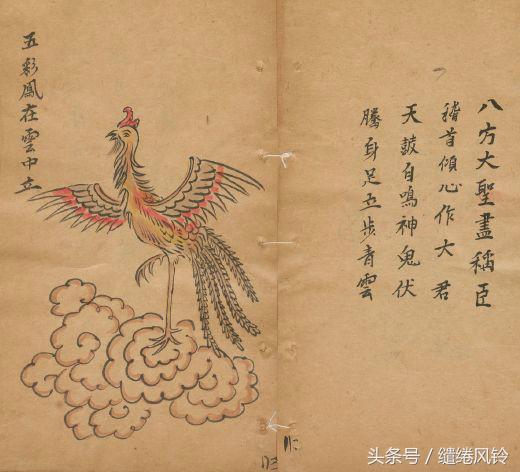 八方大聖盡稱臣
稽首傾心作大君
天鼓自鳴神鬼伏
騰身足五步青雲
五彩鳳在雲中立
头条号 / 缱绻风铃